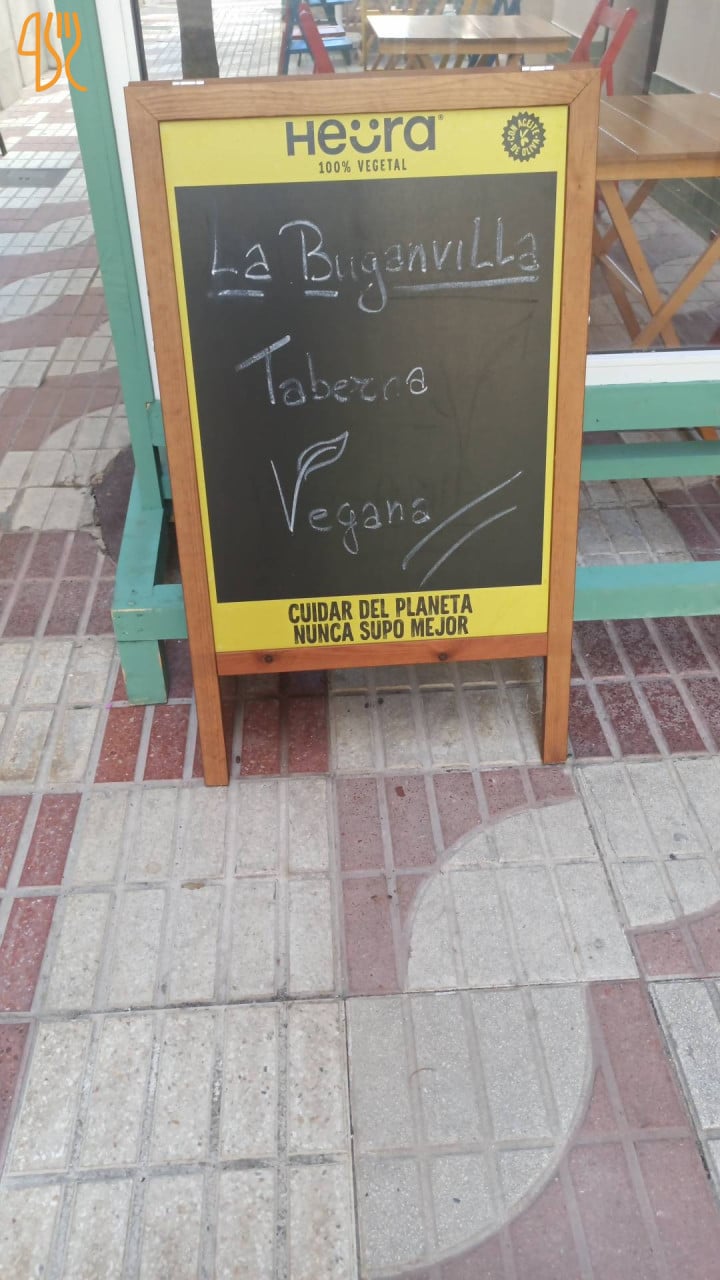 Heüra®
100% VEGETAL
CON ACEITE DE OLIVA
La Buganvilla
Taberna
Vegana
CUIDAR DEL PLANETA
NUNCA SUPO MEJOR